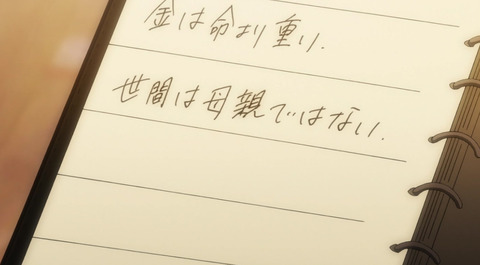 金は命より重い.
世間は母親ではない.